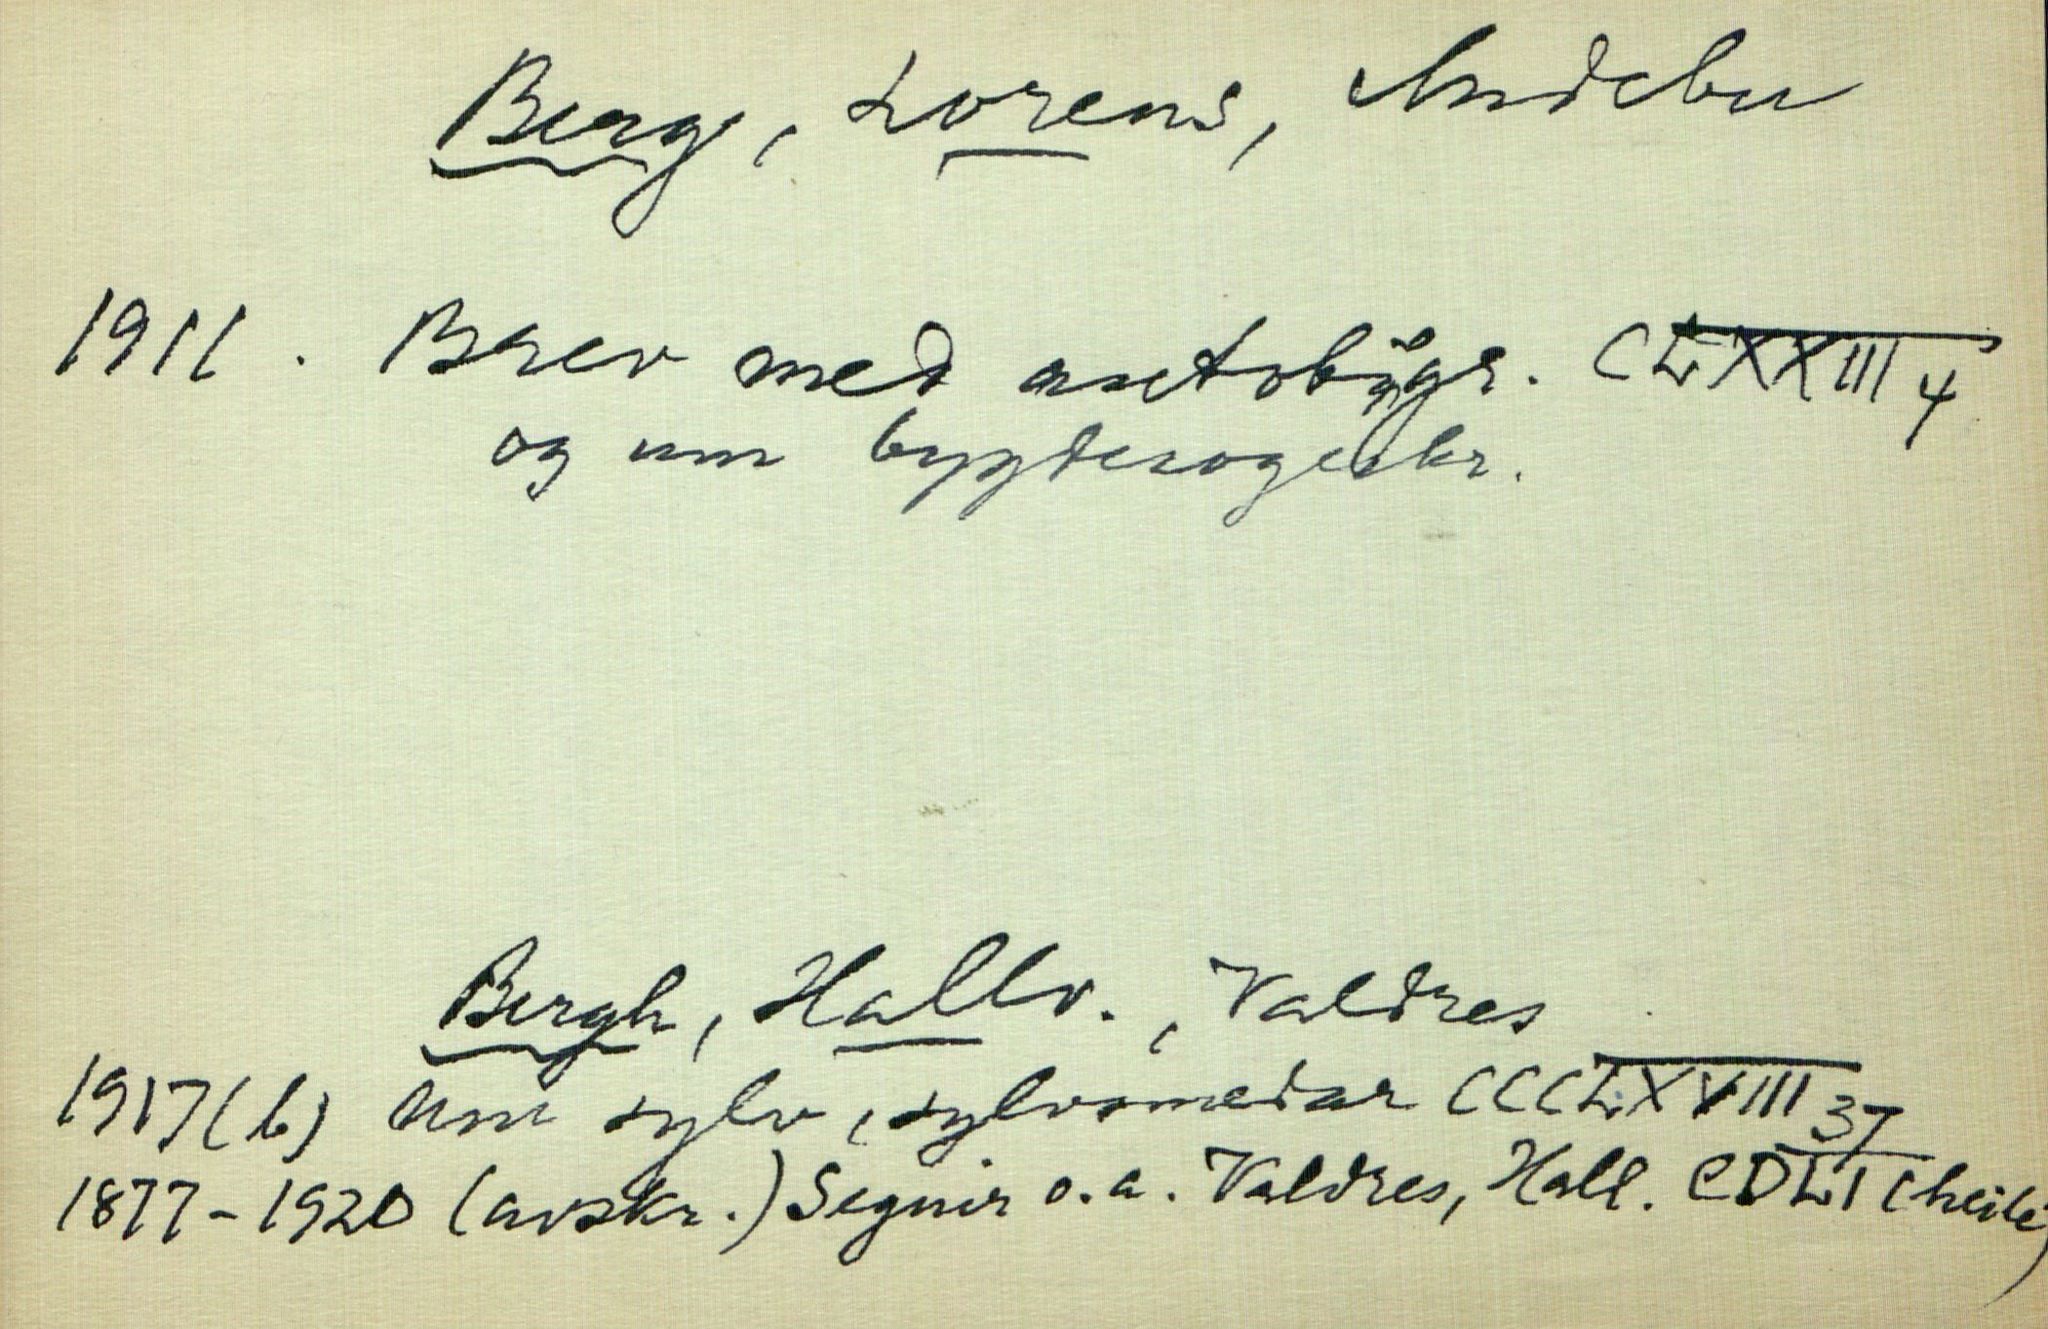 Berg, Lorens, Andebu
1911. Brev med autobiogr. CLXXIII 4
og um bygdesogeskr.
Bergh, Hallv., Valdres
1917(b) Um sylv, sylvsmedar CCCLXXVIII 37
1877-1920 (avskr.) Segnir o.a. Valdres, Hall. CDLI (heile)